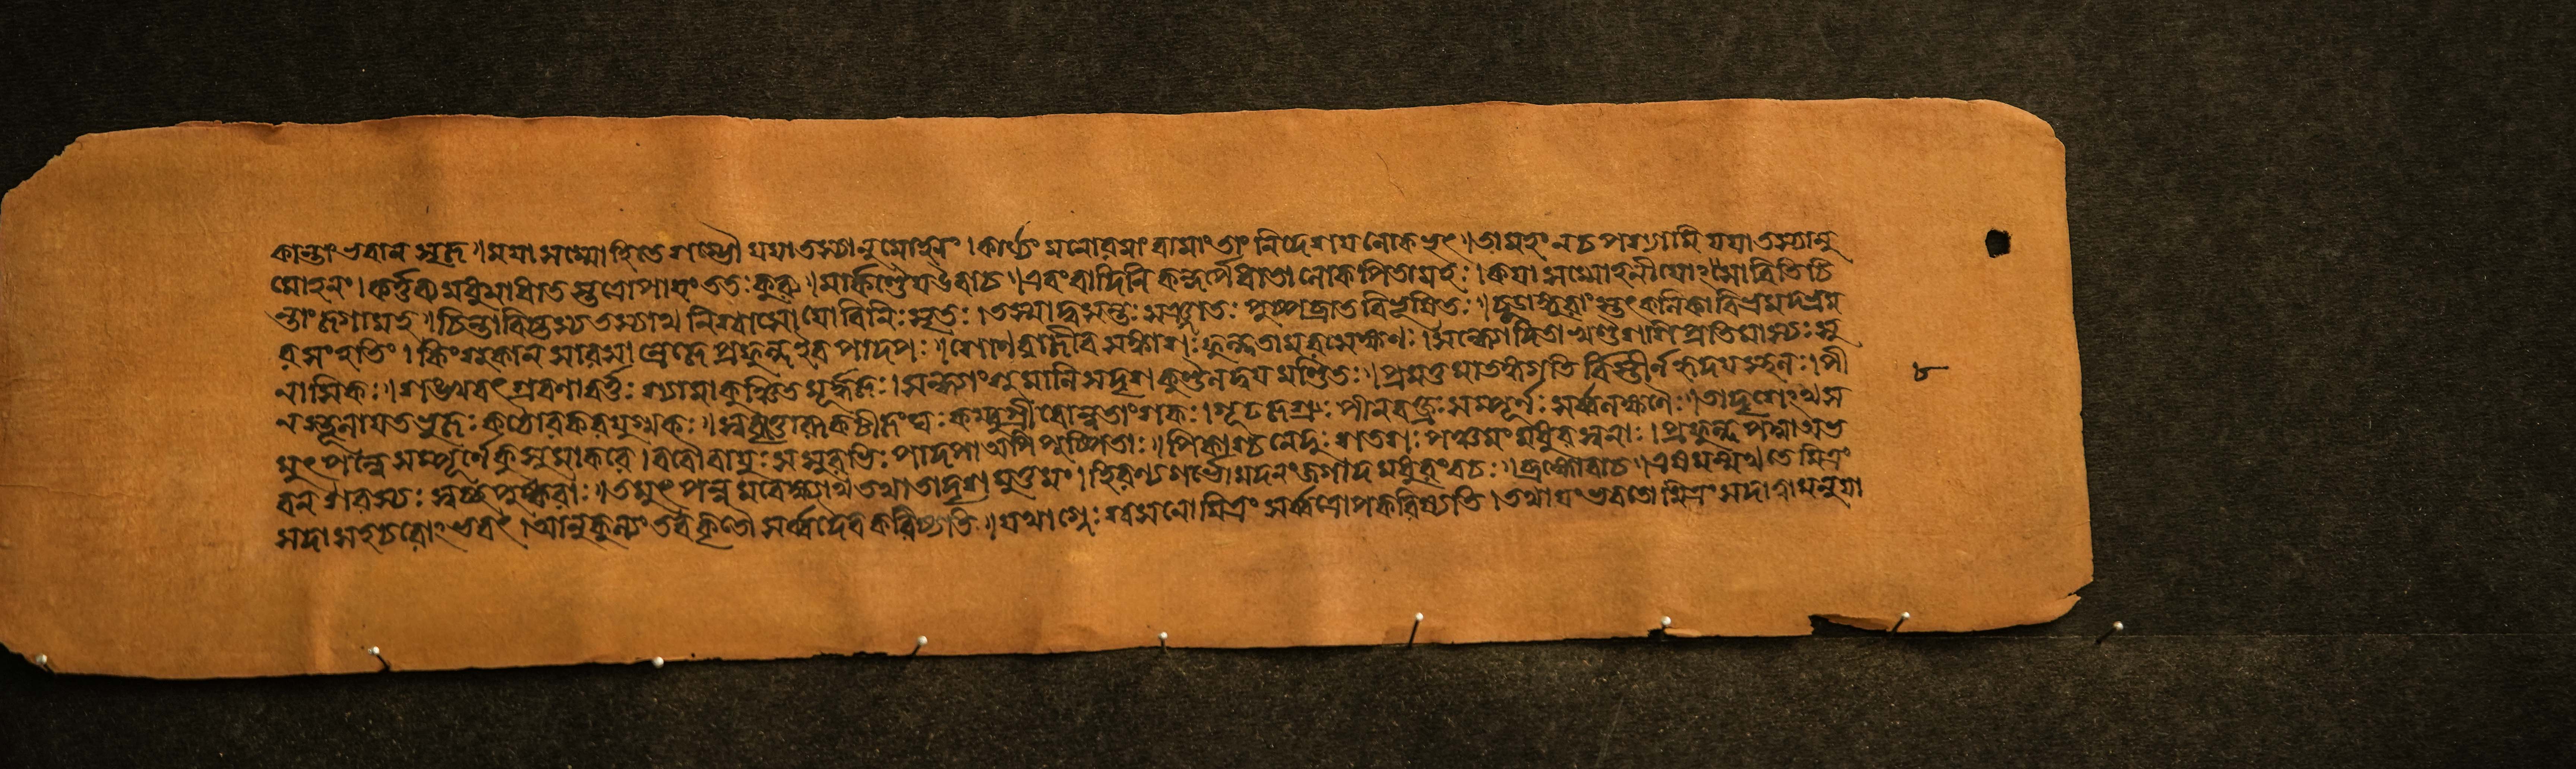 কান্তাং ভবান সৃজ॥ময়া সম্মোহিতে শম্ভৌ যয়া তস্যানুমোহনং।কার্য্যং মনোরমাং বামাং তাং নিদেশয় লোকভৃৎ॥তামহং নচ পশ্যামি যয়া তস্যানু
মোহনং।কর্ত্তব্য মধুনা ধাত স্তত্রোপায়ং ততঃ কুরু॥মার্কণ্ডেয় উবাচ॥এবং বাদিনি কন্দর্পে ধাতা লোকপিতামহঃ।কয়া সম্মোহনীয়োঽসাবিতি চি
ন্তাং জগামহ॥চিন্তাবিষ্টস্য তস্যাথ নিশ্বাসো যো বিনিঃসৃতঃ।তস্মাদ্বসন্তঃ সঞ্জাতঃ পুষ্পব্রাত বিভূষিতঃ॥চূতাঙ্কুরাংস্তৎ কলিকাবিভ্রমদ্ভ্রম
র সংহতিং।কিংশুকান সারসা রেজে প্রফুল্ল ইব পাদপঃ॥শোণ রাজীব সঙ্কাশঃ ফুল্লতামরসেক্ষণঃ।সন্ধ্যোদিতা খণ্ডশশি প্রতিমাস্যঃ সু
নাসিকঃ॥শঙ্খবৎ শ্রবণাবর্ত্তঃ শ্যামাকুঞ্চিত মূর্দ্ধজঃ।সন্ধ্যাংশুমালি সদৃশ কুণ্ডলদ্বয় মণ্ডিতঃ॥প্রমত্ত মাতঙ্গগতি র্বিস্তীর্ণ হৃদয়স্থলঃ।পী
নস্থূলায়ত ভুজঃ কঠোর কর যুগ্মকঃ॥সুবৃত্তোরু কটীজংঘঃ কম্বুগ্রীবোন্নতাংশকঃ।গূঢজত্রুঃ পীনবক্ত্রঃ সম্পূর্ণঃ সর্ব্বলক্ষণৈঃ॥তাদৃশেঽথ স
মুৎপন্নে সম্পূর্ণে কুসুমাকরে।ববৌ বায়ুঃ সসুরভিঃ পাদপা অপি পুষ্পিতাঃ॥পিকাশ্চ নেদুঃ শতশঃ পঞ্চমং মধুর স্বনাঃ।প্রফুল্ল পদ্মা অভ
বন সরস্যঃ স্বচ্ছ পুষ্করাঃ॥তমুৎপন্ন মবেক্ষ্যাথ তথা তাদৃশ মুত্তমং।হিরণ্যগর্ভো মদনং জগাদ মধুরং বচঃ॥ব্রহ্মোবাচ॥এষ মন্মথ তে মিত্রং
সদা সহচরোঽভবৎ।আনুকূল্যং তব কৃতৌ সর্ব্বদৈব করিষ্যতি॥যথাগ্নেঃ শ্বসনো মিত্রং সর্ব্বত্রোপকরিষ্যতি।তথায়ং ভবতো মিত্রং সদা ত্বামনুয়া
৮